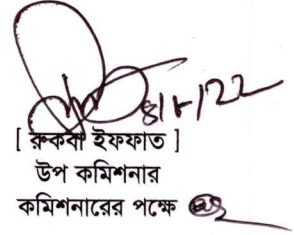 8/৮/22
[ রুকবা ইফফাত ]
উপ কমিশনার
কমিশনারের পক্ষে